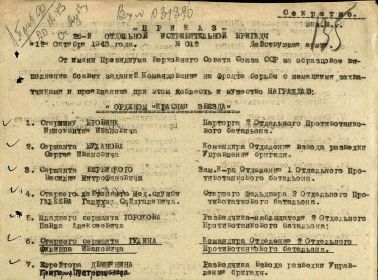 Секретно.
ПРИКАЗ
26-Й ОТДЕЛЬНОЙ ИСТРЕБИТЕЛЬНОЙ БРИГАДЫ
"12" Октября 1943 года. № 012 Действующая армия.
От имени Президиума Верховного Совета Союза ССР за образцовое вы-
полнение боевых заданий Командования на фронте борьбы с немецкими захва-
тчиками и проявленные при этом доблесть и мужество НАГРАЖДАЮ:
"ОРДЕНОМ "КРАСНАЯ ЗВЕЗДА"
1. Старшину
Иннокентия Ивановича
Парторга 2 Отдельного Противотанково-
го батальона.
2. Сержанта БУЛАНОВА
Сергея Ивановича
Командира Отделения Взвода разведки
Управления бригады.
3. Сержанта
Василия Митрофановича
Зам.К-ра Отделения 1 Отдельного Про-
тивотанкового батальона.
4. Старшего Лейтенанта Мед.службы
Старшего фельдшера 2 Отдельного Про-
тивотанкового батальона.
5. Младшего сержанта ГОРОХОВА
Павла Алексеевича
Разведчика-наблюдателя 2 Отдельного
Противотанкового батальона.
6. Старшего сержанта
Филиппа Ивановича
Командира Отделения 2 Отдельного
Противотанкового батальона.
7. Ефрейтора
Григория Петровича
Разведчика Взвода разведки Управле-
ния бригады.